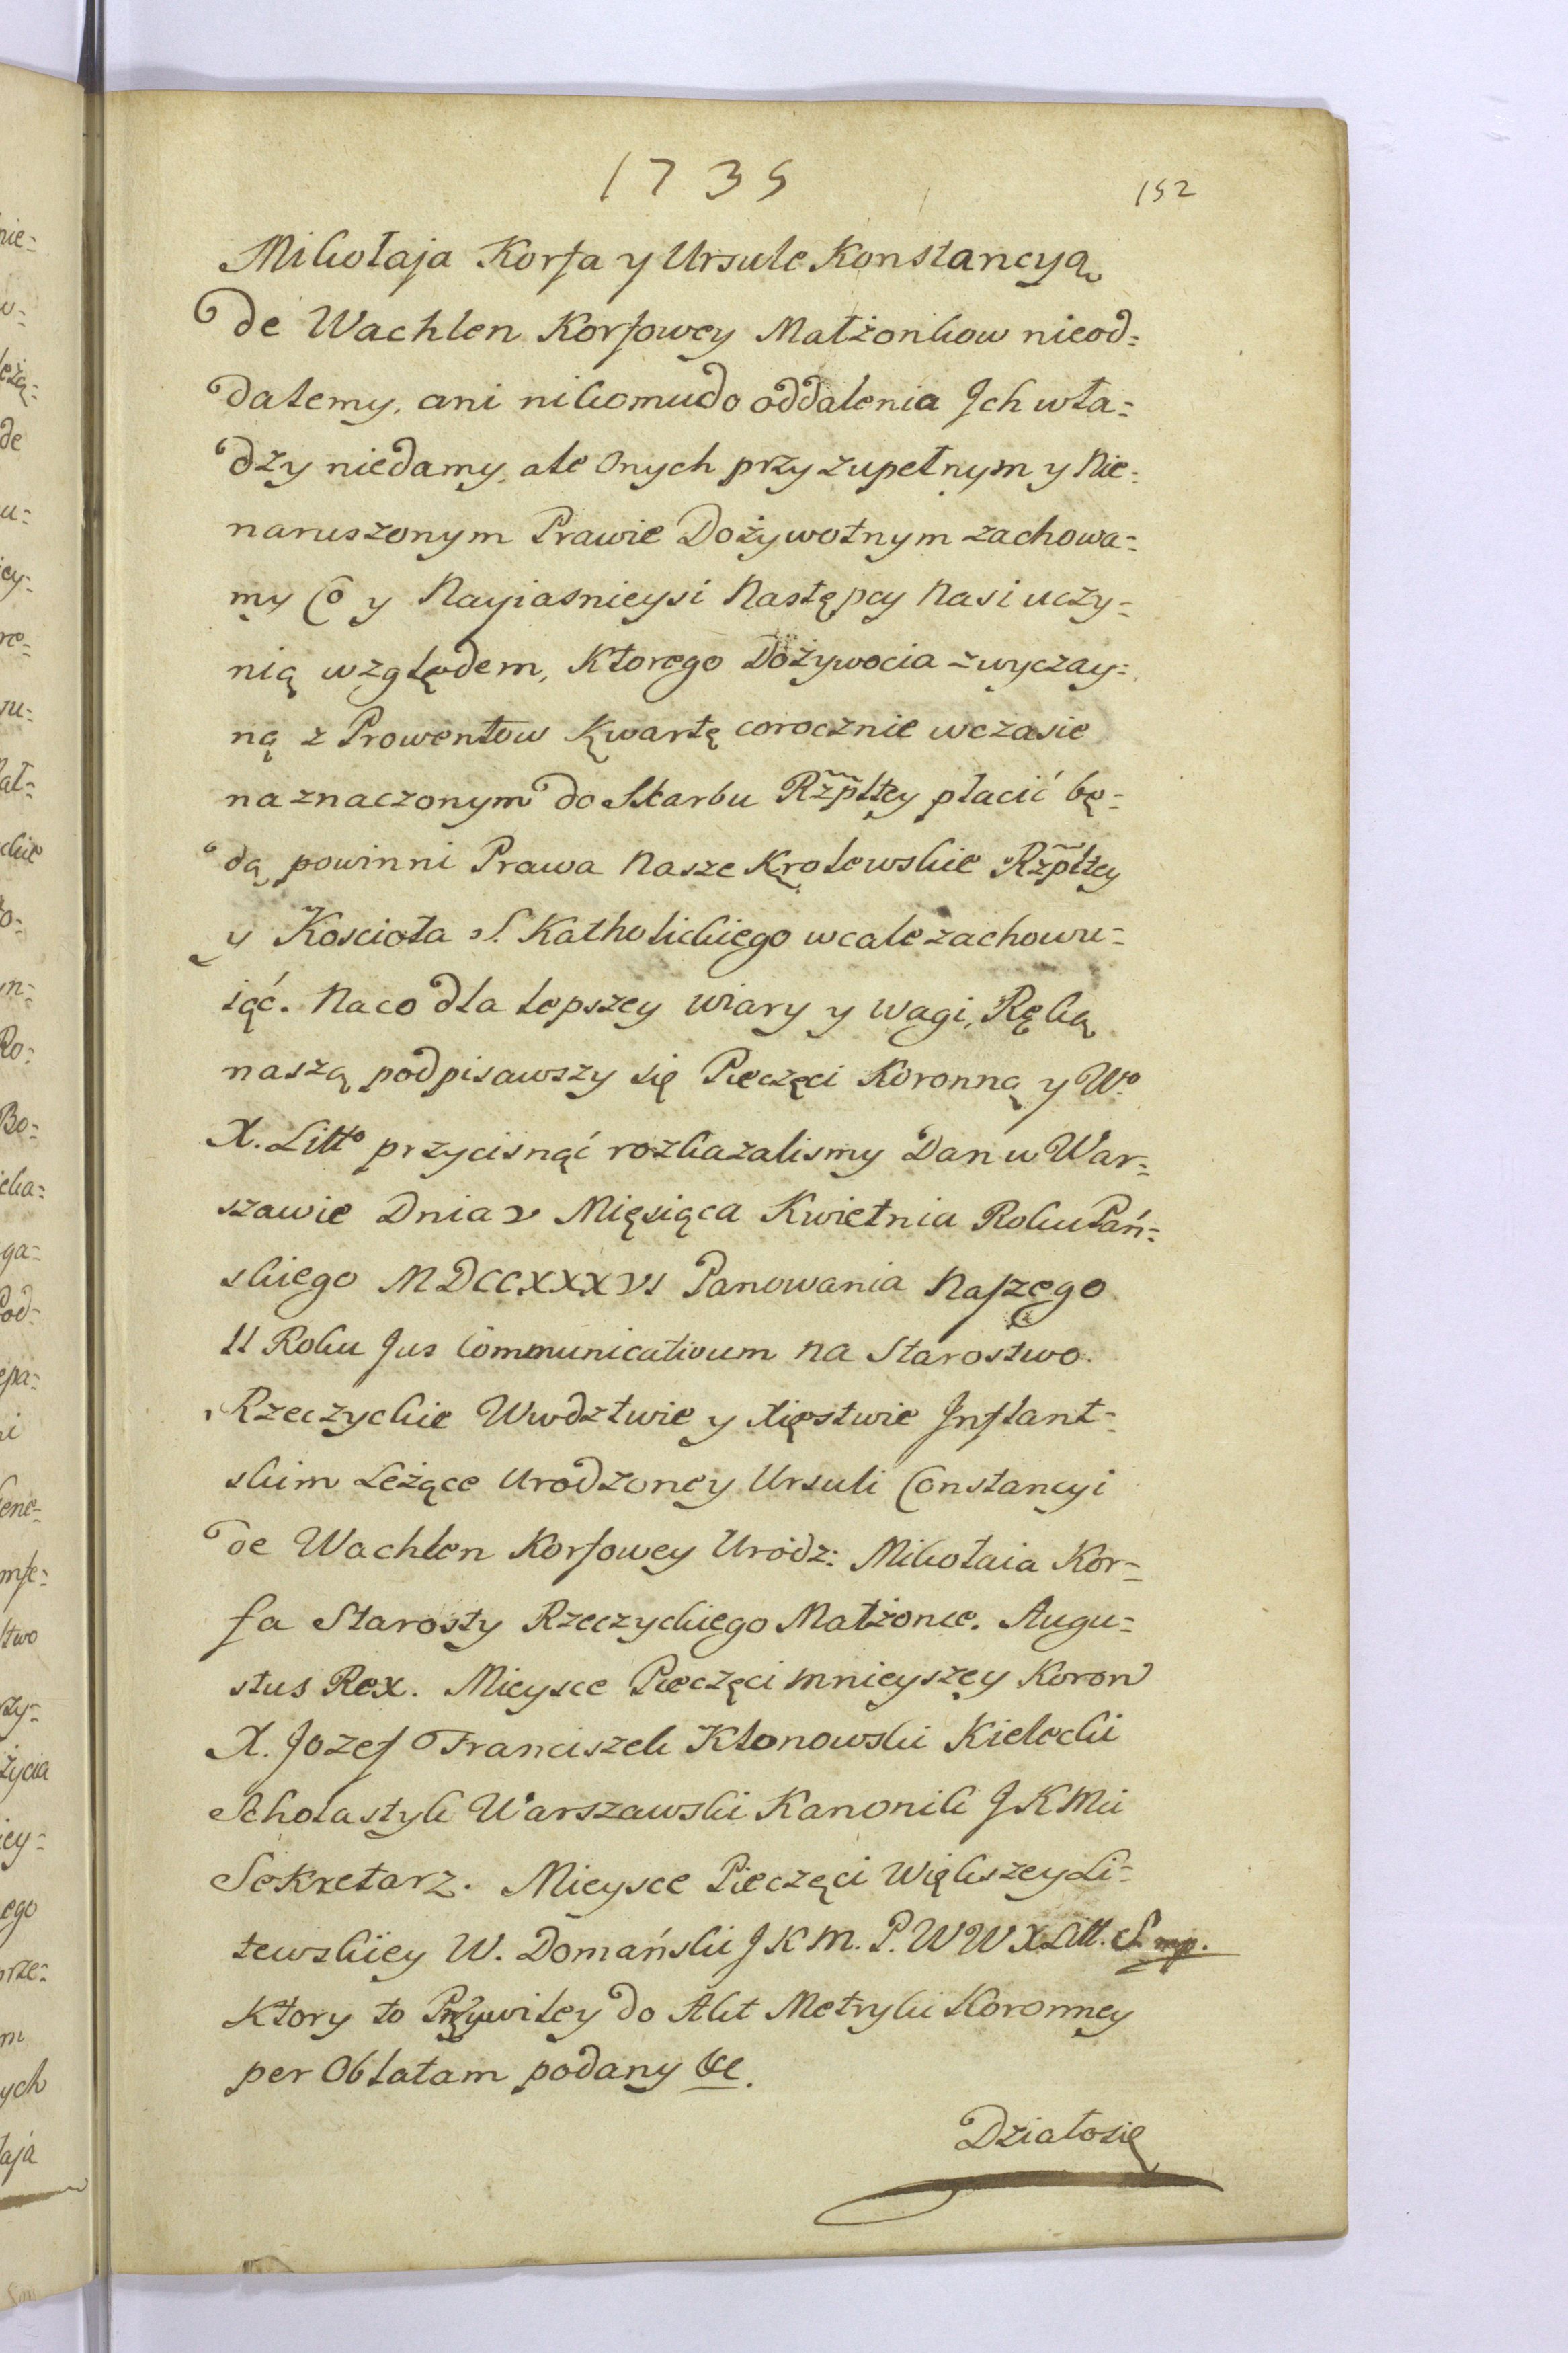 1735
152
Mikołaja Korfa y Ursule Konstancyą
de Wachlen Korfowey Małżonkow nieod=
dalemy, ani nikomudo oddalenia Jch wła=
dzy niedamy, ale Onych przy zupełnym y Nie=
naruszonym Prawie Dożywotnym zachowa=
my Co y Nayiasnieysi Następcy Nasi uczy=
nią względem, Ktorego Dożywocia zwyczay=
ną z Prowentow Kwartę corocznie wczasie
naznaczonym do Skarbu Rzpltey płacić bę=
dą powinni Prawa Nasze Krolewskie Rzpltey
y Kościoła S. Katholickiego wcale zachowu=
iąć. Naco dla lepszey wiary y wagi, Ręką
naszą podpisawszy się Pieczęci Koronną y Wo
X. Litto przycisnąć rozkazalismy Dan w War=
szawie Dnia v Mięsiąca Kwietnia Roku Pań=
skiego MDCCXXXVI Panowania Naszego
II Roku Jus Communicativum na Starostwo
Rzeczyckie Wwdztwie y Xięstwie Inflant=
skim Leżące Urodzoney Ursuli Constancyi
de Wachlen Korfowey Urodz: Mikołaia Kor=
fa Starosty Rzeczyckiego Małżonce. Augu=
stus Rex. Mieysce Pieczęci mnieyszey Koron
X. Jozef Franciszek Kłonowski Kielecki
Scholastyk Warszawski Kanonik J K Mci
Sekretarz. Mieysce Pieczęci Większey Li=
tewskiey W. Domański J K M. P. W W X Litt. S. mp.
Ktory to Przywiley do Akt Metryki Koronney
per Oblatam podany &c.
Działosię